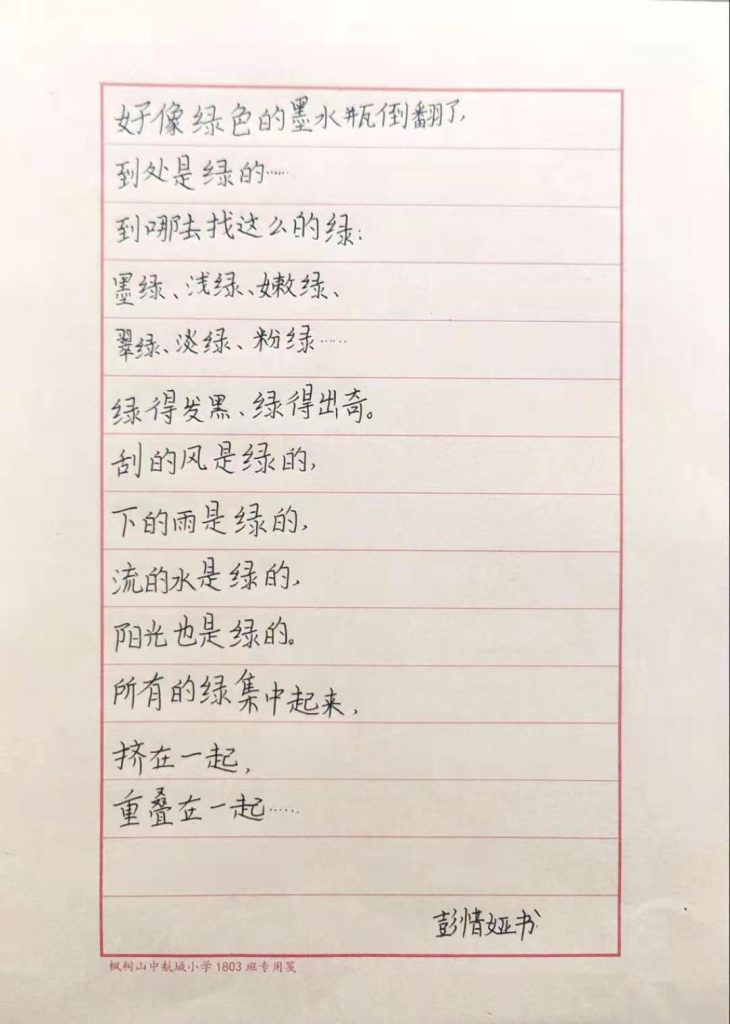 好像绿色的墨水瓶倒翻了,
到处是绿的……
到哪去找这么的绿:
墨绿、浅绿、嫩绿、
翠绿、淡绿、粉绿……
绿得发黑、绿得出奇。
刮的风是绿的,
下的雨是绿的,
流的水是绿的,
阳光也是绿的。
所有的绿集中起来,
挤在一起,
重叠在一起……
彭惜娅书
枫树山中航城小学1803班专用笺